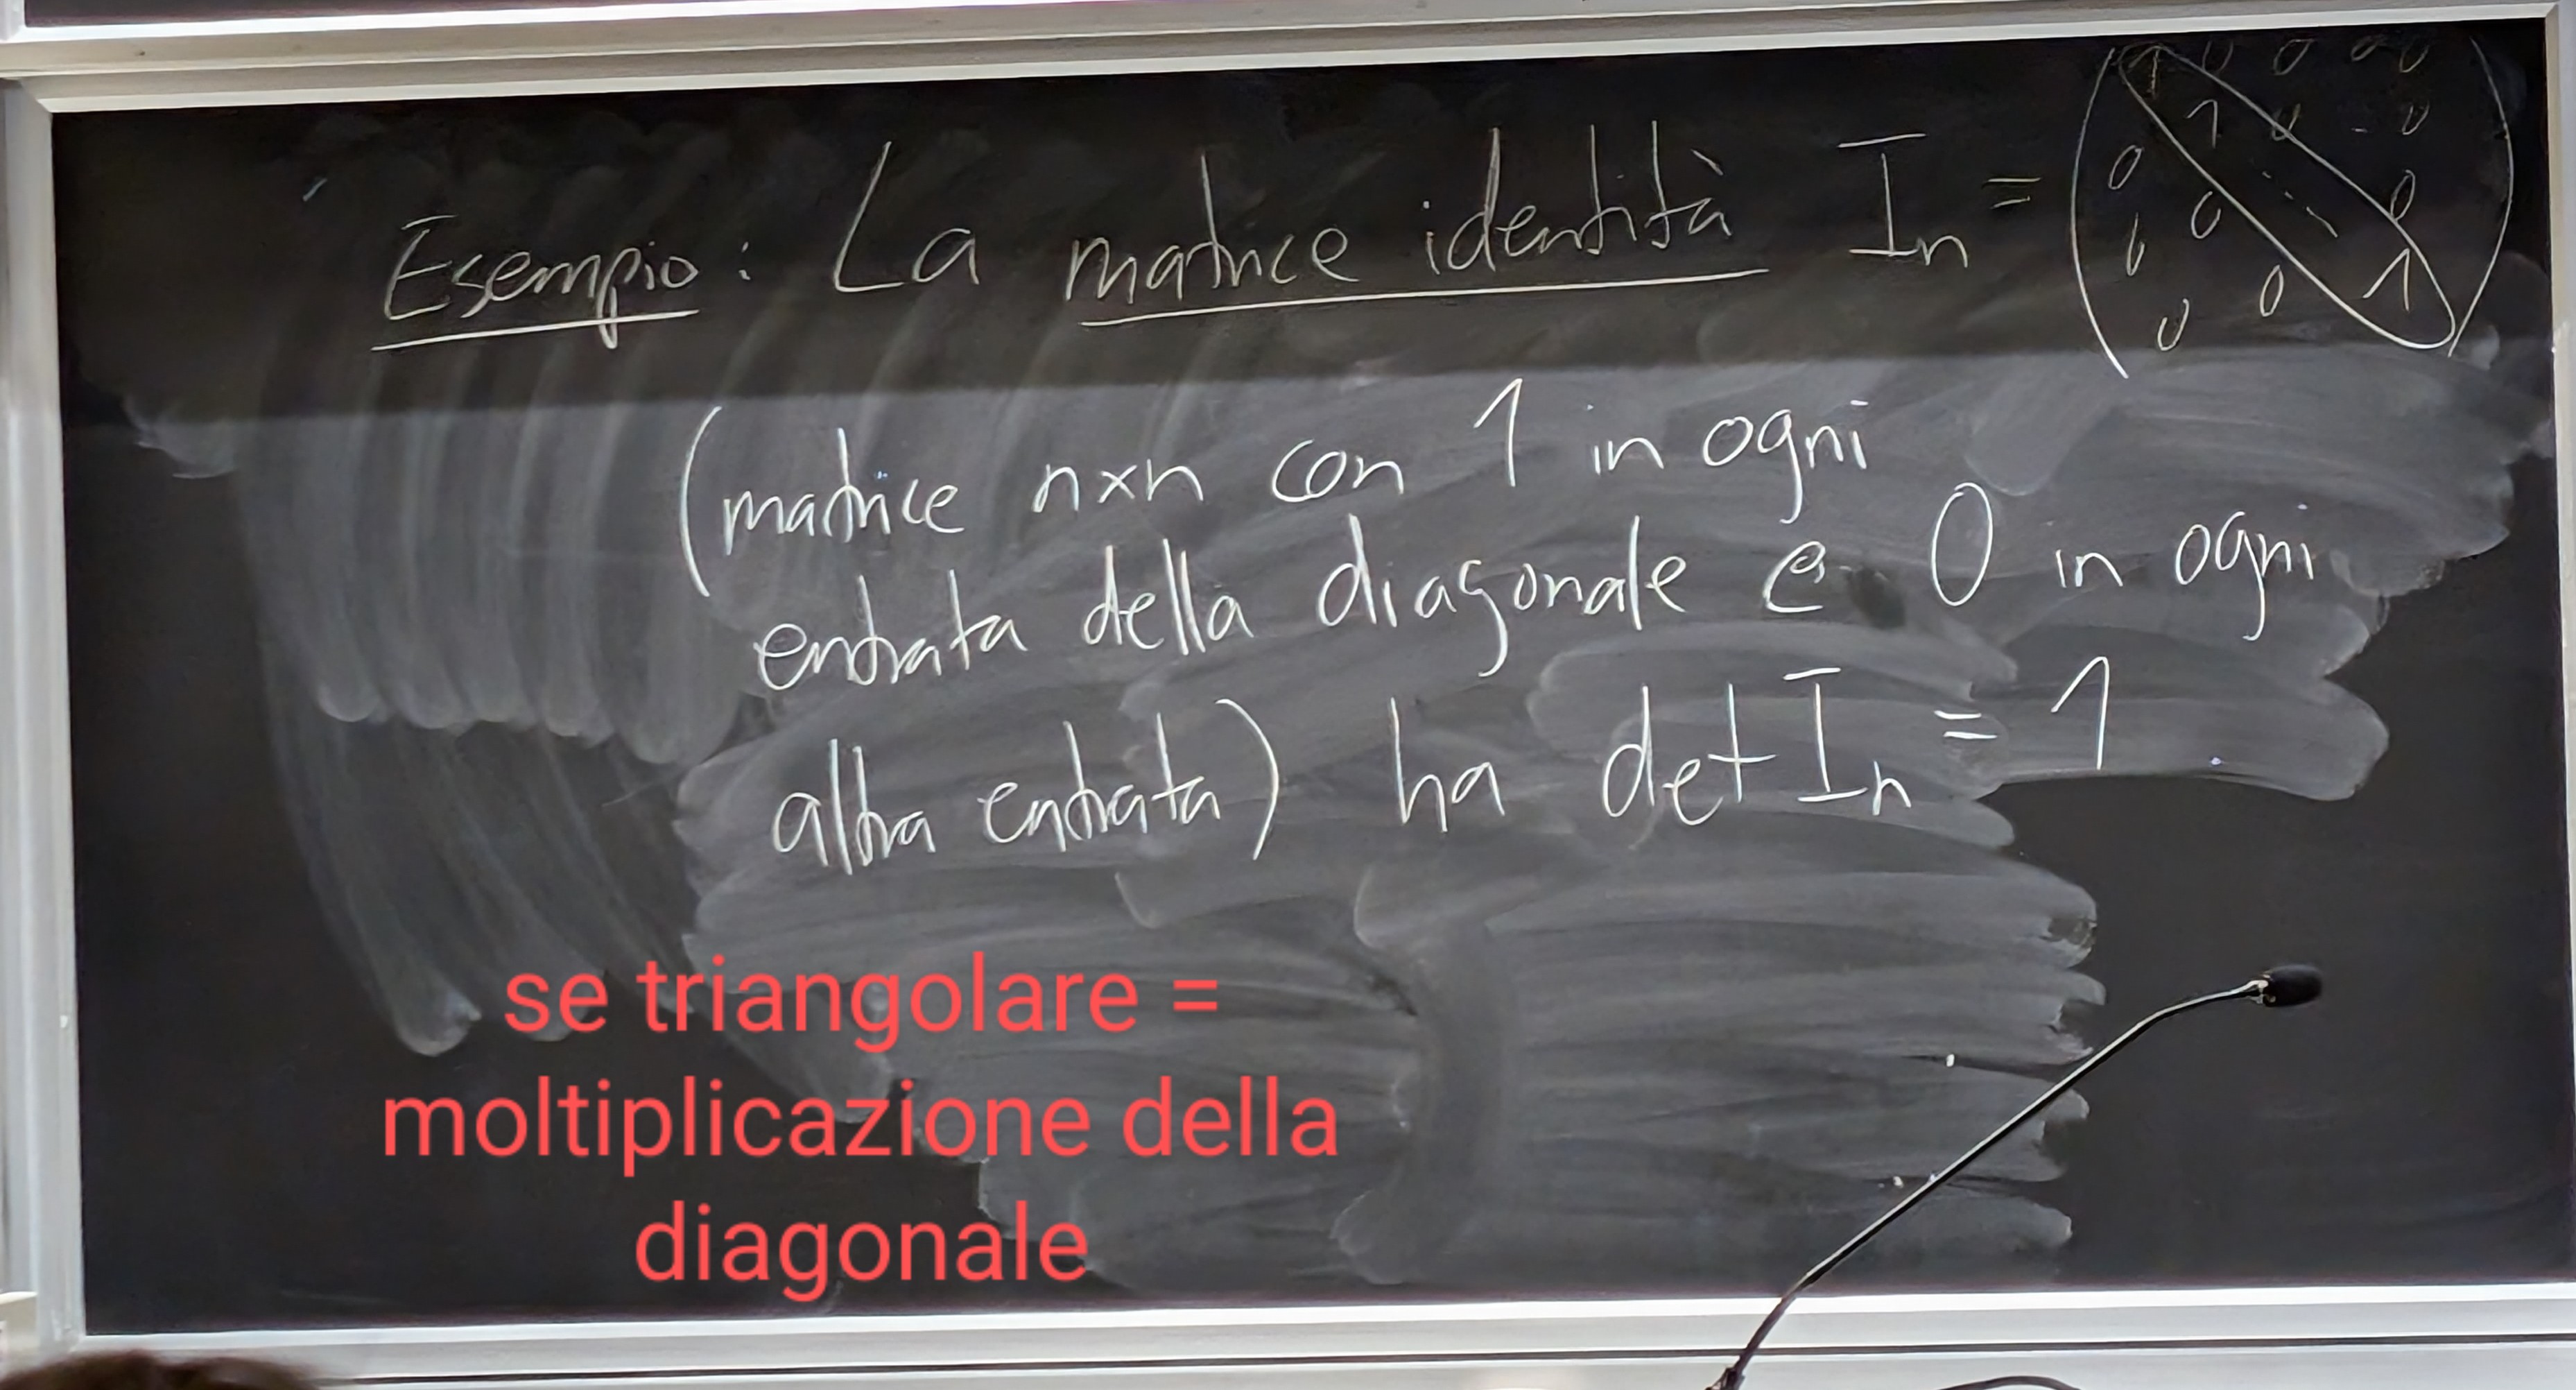 Esempio: La matrice identità In = (1 0 0 0 0
1 0 - 0
0 ... 0
0 0 1
0)
(matrice n×n con 1 in ogni
entrata della diagonale e 0 in ogni
altra entrata) ha det In = 1.
se triangolare =
moltiplicazione della
diagonale